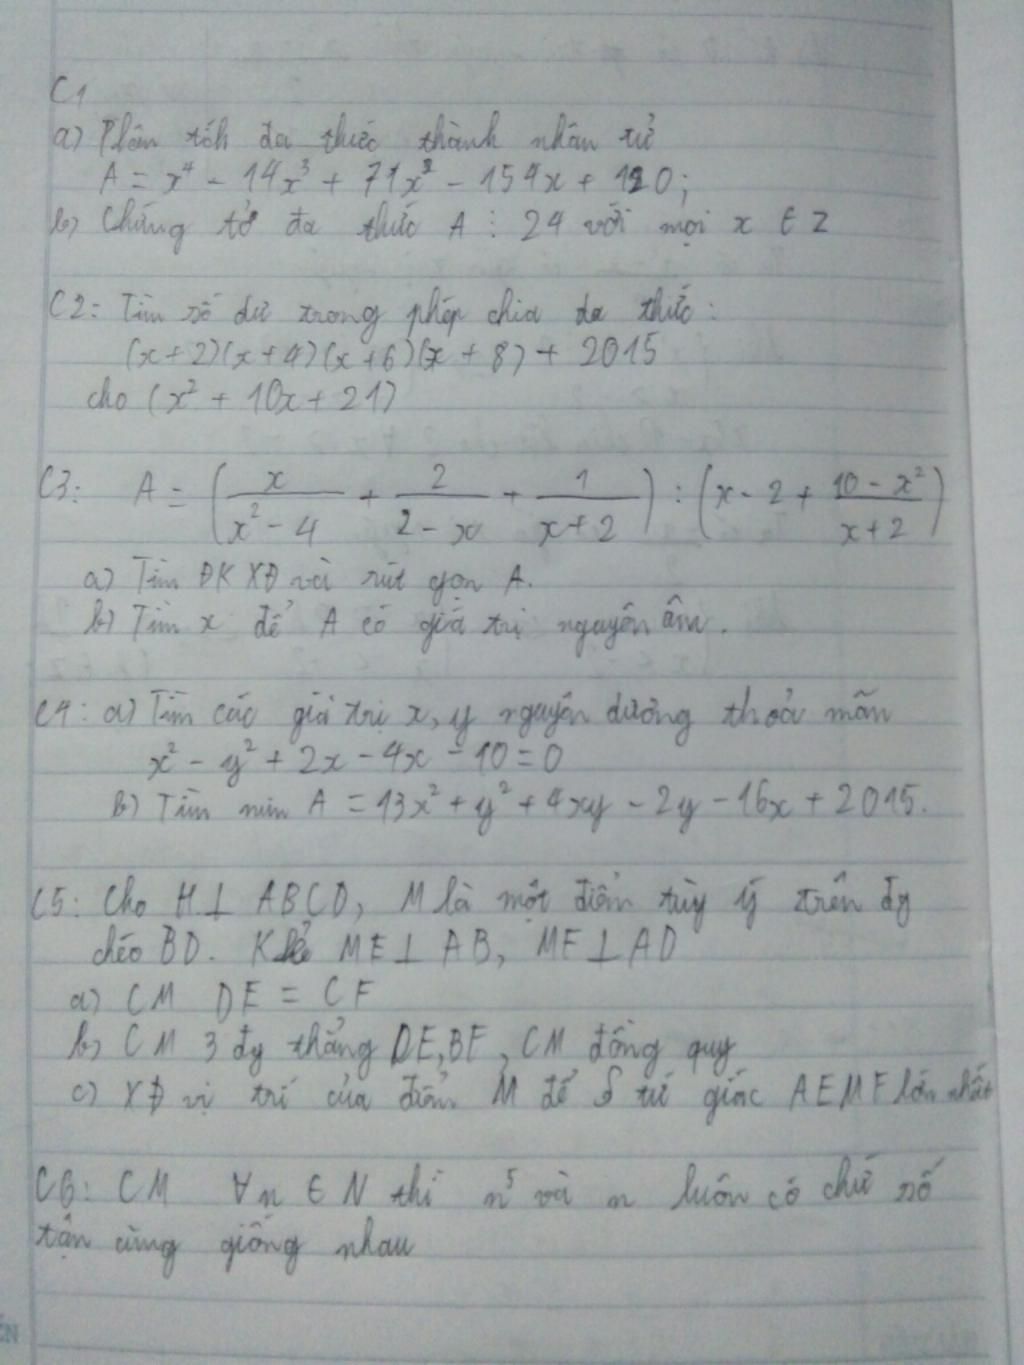 C1
a) Phân tích đa thức thành nhân tử
A = x⁴ - 14x³ + 71x² - 154x + 120;
b) Chứng tỏ đa thức A ⋮ 24 với mọi x ∈ Z
C2: Tìm số dư trong phép chia đa thức:
(x+2)(x+4)(x+6)(x+8) + 2015
cho (x² + 10x + 21)
C3: A = (x/(x² - 4) + 2/(2 - x) + 1/(x + 2)) : (x - 2 + (10 - x²)/(x + 2))
a) Tìm ĐKXĐ và rút gọn A.
b) Tìm x để A có giá trị nguyên âm.
C4: a) Tìm các giá trị x, y nguyên dương thoả mãn
x² - y² + 2x - 4x - 10 = 0
b) Tìm min A = 13x² + y² + 4xy - 2y - 16x + 2015.
C5: Cho H⊥ ABCD, M là một điểm tùy ý trên đg
chéo BD. Kẻ ME ⊥ AB, MF ⊥ AD
a) CM DE = CF
b) CM 3 đg thẳng DE, BF, CM đồng quy
c) XĐ vị trí của điểm M để S tứ giác AEMF lớn nhất
C6: CM ∀n ∈ N thì n⁵ và n luôn có chữ số
tận cùng giống nhau